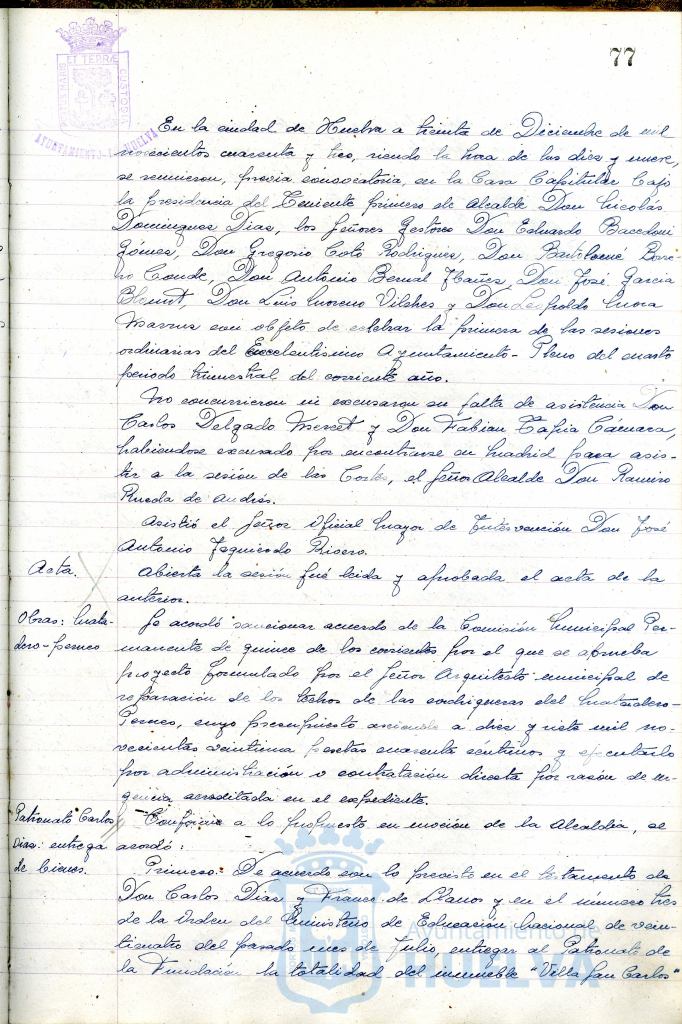 77
PORTUS MARIS ET TERRÆ CUSTODIA
AYUNTAMIENTO HUELVA
En la ciudad de Huelva a treinta de Diciembre de mil
novecientos cuarenta y tres, siendo la hora de las diez y nueve,
se reunieron, previa convocatoria, en la Casa Capitular bajo
la presidencia del Teniente primero de Alcalde Don Nicolás
Dominguez Diaz, los Señores Gestores Don Eduardo Bacedoni
Gómez, Don Gregorio Coto Rodriguez, Don Bartolomé Borre-
ro Conde, Don Antonio Bernal Ibañez, Don José Garcia
Don Luis Moreno Vilches y Don Leopoldo Mora
con objeto de celebrar la primera de las sesiones
ordinarias del Excelentisimo Ayuntamiento-Pleno del cuarto
periodo trimestral del corriente año.
No concurrieron ni excusaron su falta de asistencia Don
Carlos Delgado y Don Fabian Tapia Cámara,
habiendose excusado por encontrarse en Madrid para asis-
tir a la sesión de las Cortes, el Señor Alcalde Don Ramiro
Rueda de Andrés.
Asistió el Señor Oficial Mayor de Intervención Don José
Antonio Izquierdo Risero.
Acta.
Abierta la sesión fué leida y aprobada el acta de la
anterior.
Obras: Mata-
dero-perneo
Se acordó sancionar acuerdo de la Comisión Municipal Per-
manente de quince de los corrientes por el que se aprueba
proyecto formulado por el Señor Arquitecto municipal de
reparación de los techos de las cochiqueras del Matadero-
Perneo, cuyo presupuesto asciende a diez y siete mil no-
vecientas veintiuna pesetas cuarenta céntimos y ejecutarlo
por administración o contratación directa por razón de ur-
gencia acreditada en el expediente.
Patronato Carlos
Diaz: entrega
de bienes.
Conforme a lo propuesto en moción de la Alcaldia, se
acordó:
Primero: De acuerdo con lo previsto en el testamento de
Don Carlos Diaz y Franco de Llanos y en el número tres
de la Orden del Ministerio de Educación Nacional de vein-
ticuatro del pasado mes de Julio, entregar al Patronato de
la Fundación la totalidad del inmueble "Villa San Carlos"
Ayuntamiento de
HUELVA